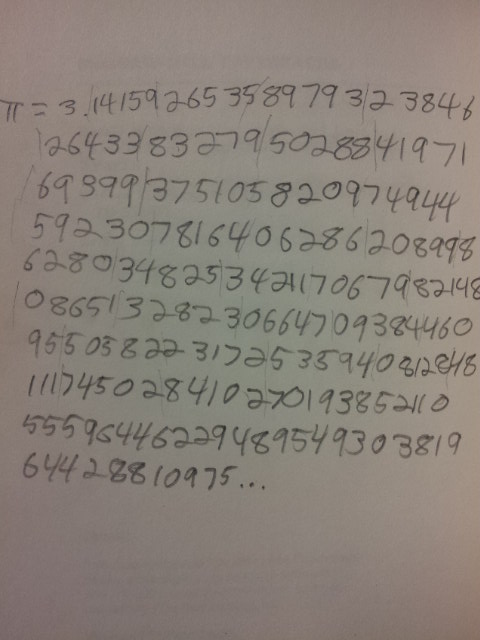 π = 3.14159265358979323846
26433832795028841971
69399375105820974944
592307816406286208998
628034825342117067982148
08651328230664709384460
955058223172535940812848
111745028410270193852110
55596446229489549303819
64428810975...